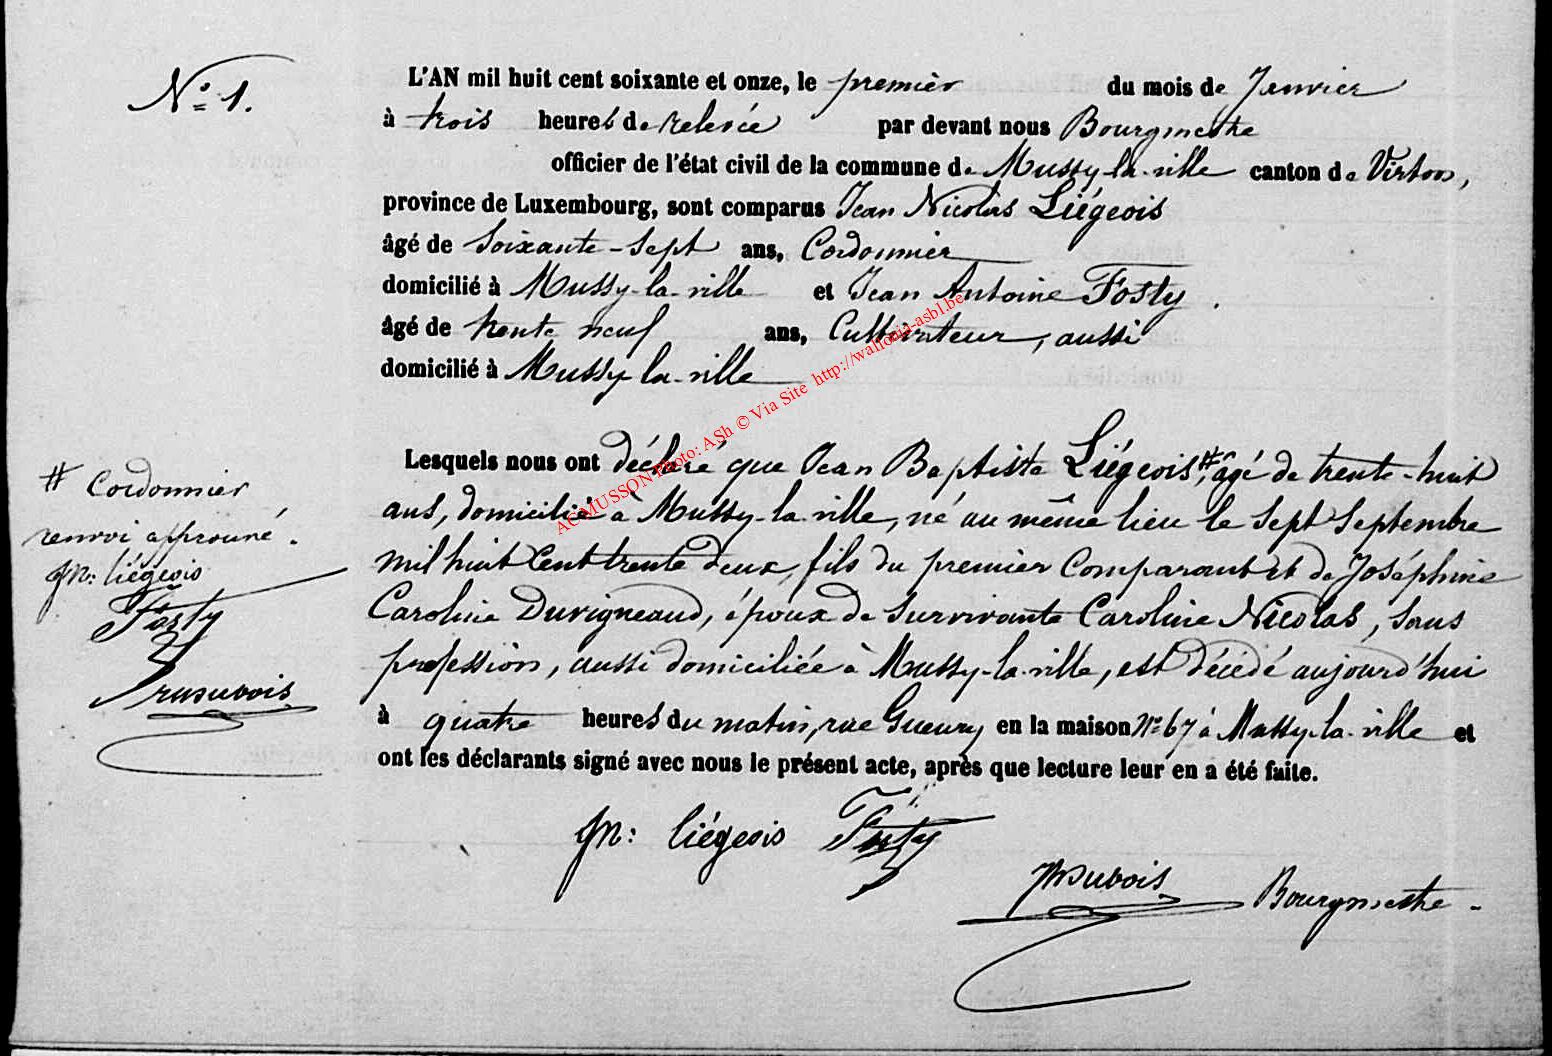 N° 1.
L'AN mil huit cent soixante et onze, le premier du mois de Janvier
à trois heures de relevée par devant nous Bourgmestre
officier de l'état civil de la commune de Mussy-la-ville canton de Virton,
province de Luxembourg, sont comparus Jean Nicolas Liégeois
âgé de soixante-sept ans, Cordonnier
domicilié à Mussy-la-ville et Jean Antoine Fosty.
âgé de trente neuf ans, Cultivateur, aussi
domicilié à Mussy-la-ville
Lesquels nous ont déclaré que Jean Baptiste Liégeois,# âgé de trente-huit
ans, domicilié à Mussy-la-ville, né au même lieu le sept Septembre
mil huit Cent trente deux, fils du premier Comparant et de Joséphine
Caroline Duvigneaud, époux de survivante Caroline Nicolas, sans
profession, aussi domiciliée à Mussy-la-ville, est décédé aujourd'hui
à quatre heures du matin, rue Gueury en la maison N° 67 à Mussy-la-ville et
ont les déclarants signé avec nous le présent acte, après que lecture leur en a été faite.
# Cordonnier
renvoi approuvé.
JN: liégeois
Fosty
JN: liégeois Fosty
Dubois Bourgmestre.
ACMUSSON Photo: ASh © Via Site http://wallonia-asbl.be